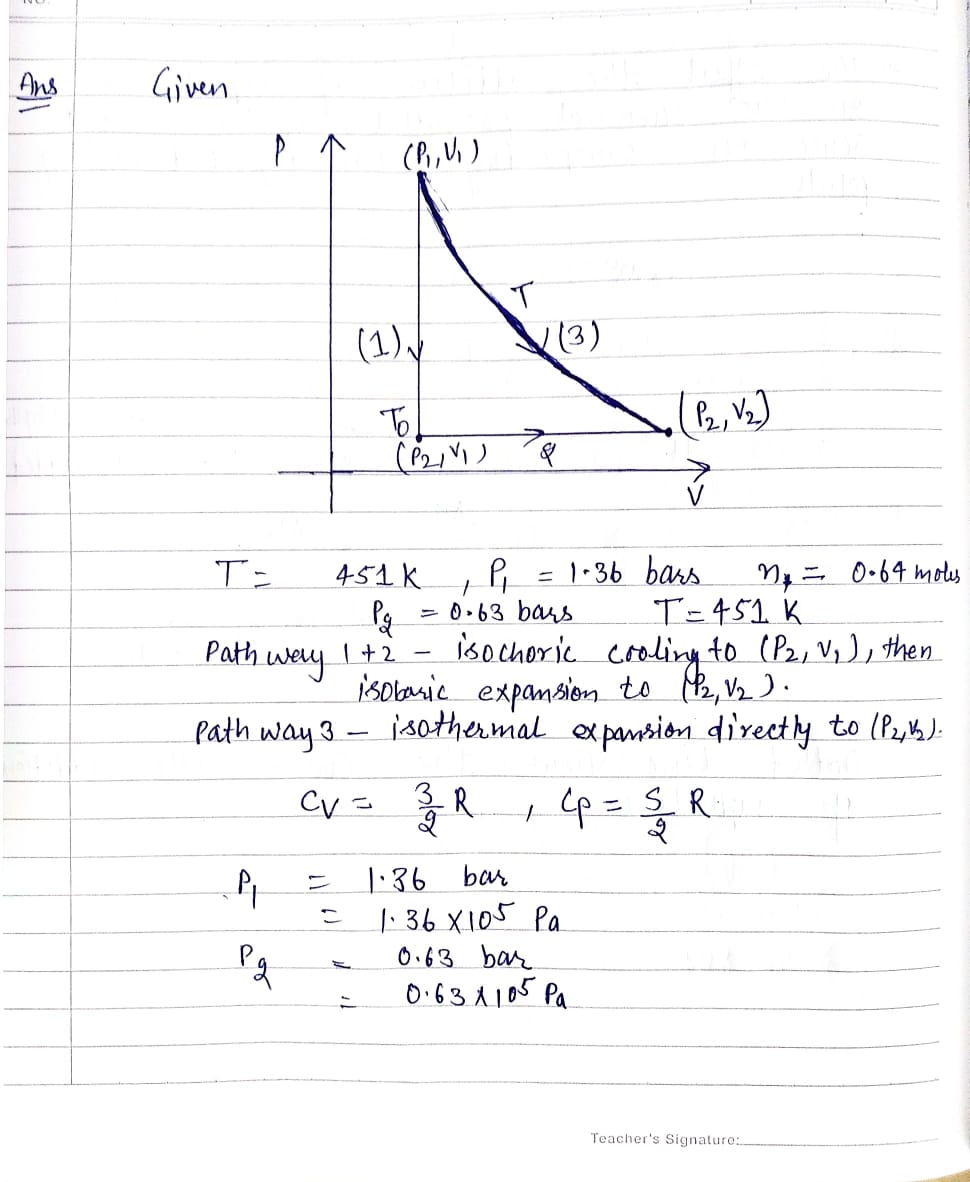 Ans Given
P (P₁,V₁)
T
(1) (3)
To (P₂,V₂)
(P₂,V₁)
V
T = 451K , P₁ = 1.36 bars n = 0.64 moles
P₂ = 0.63 bars T = 451 K
Path wey 1+2 - isochoric cooling to (P₂,V₁), then
isobaric expansion to (P₂,V₂).
Path way 3 - isothermal expansion directly to (P₂,V₂).
Cv = 3/2 R , Cp = 5/2 R
P₁ = 1.36 bar
= 1.36 X10⁵ Pa
P₂ = 0.63 bar
= 0.63 X10⁵ Pa
Teacher's Signature: